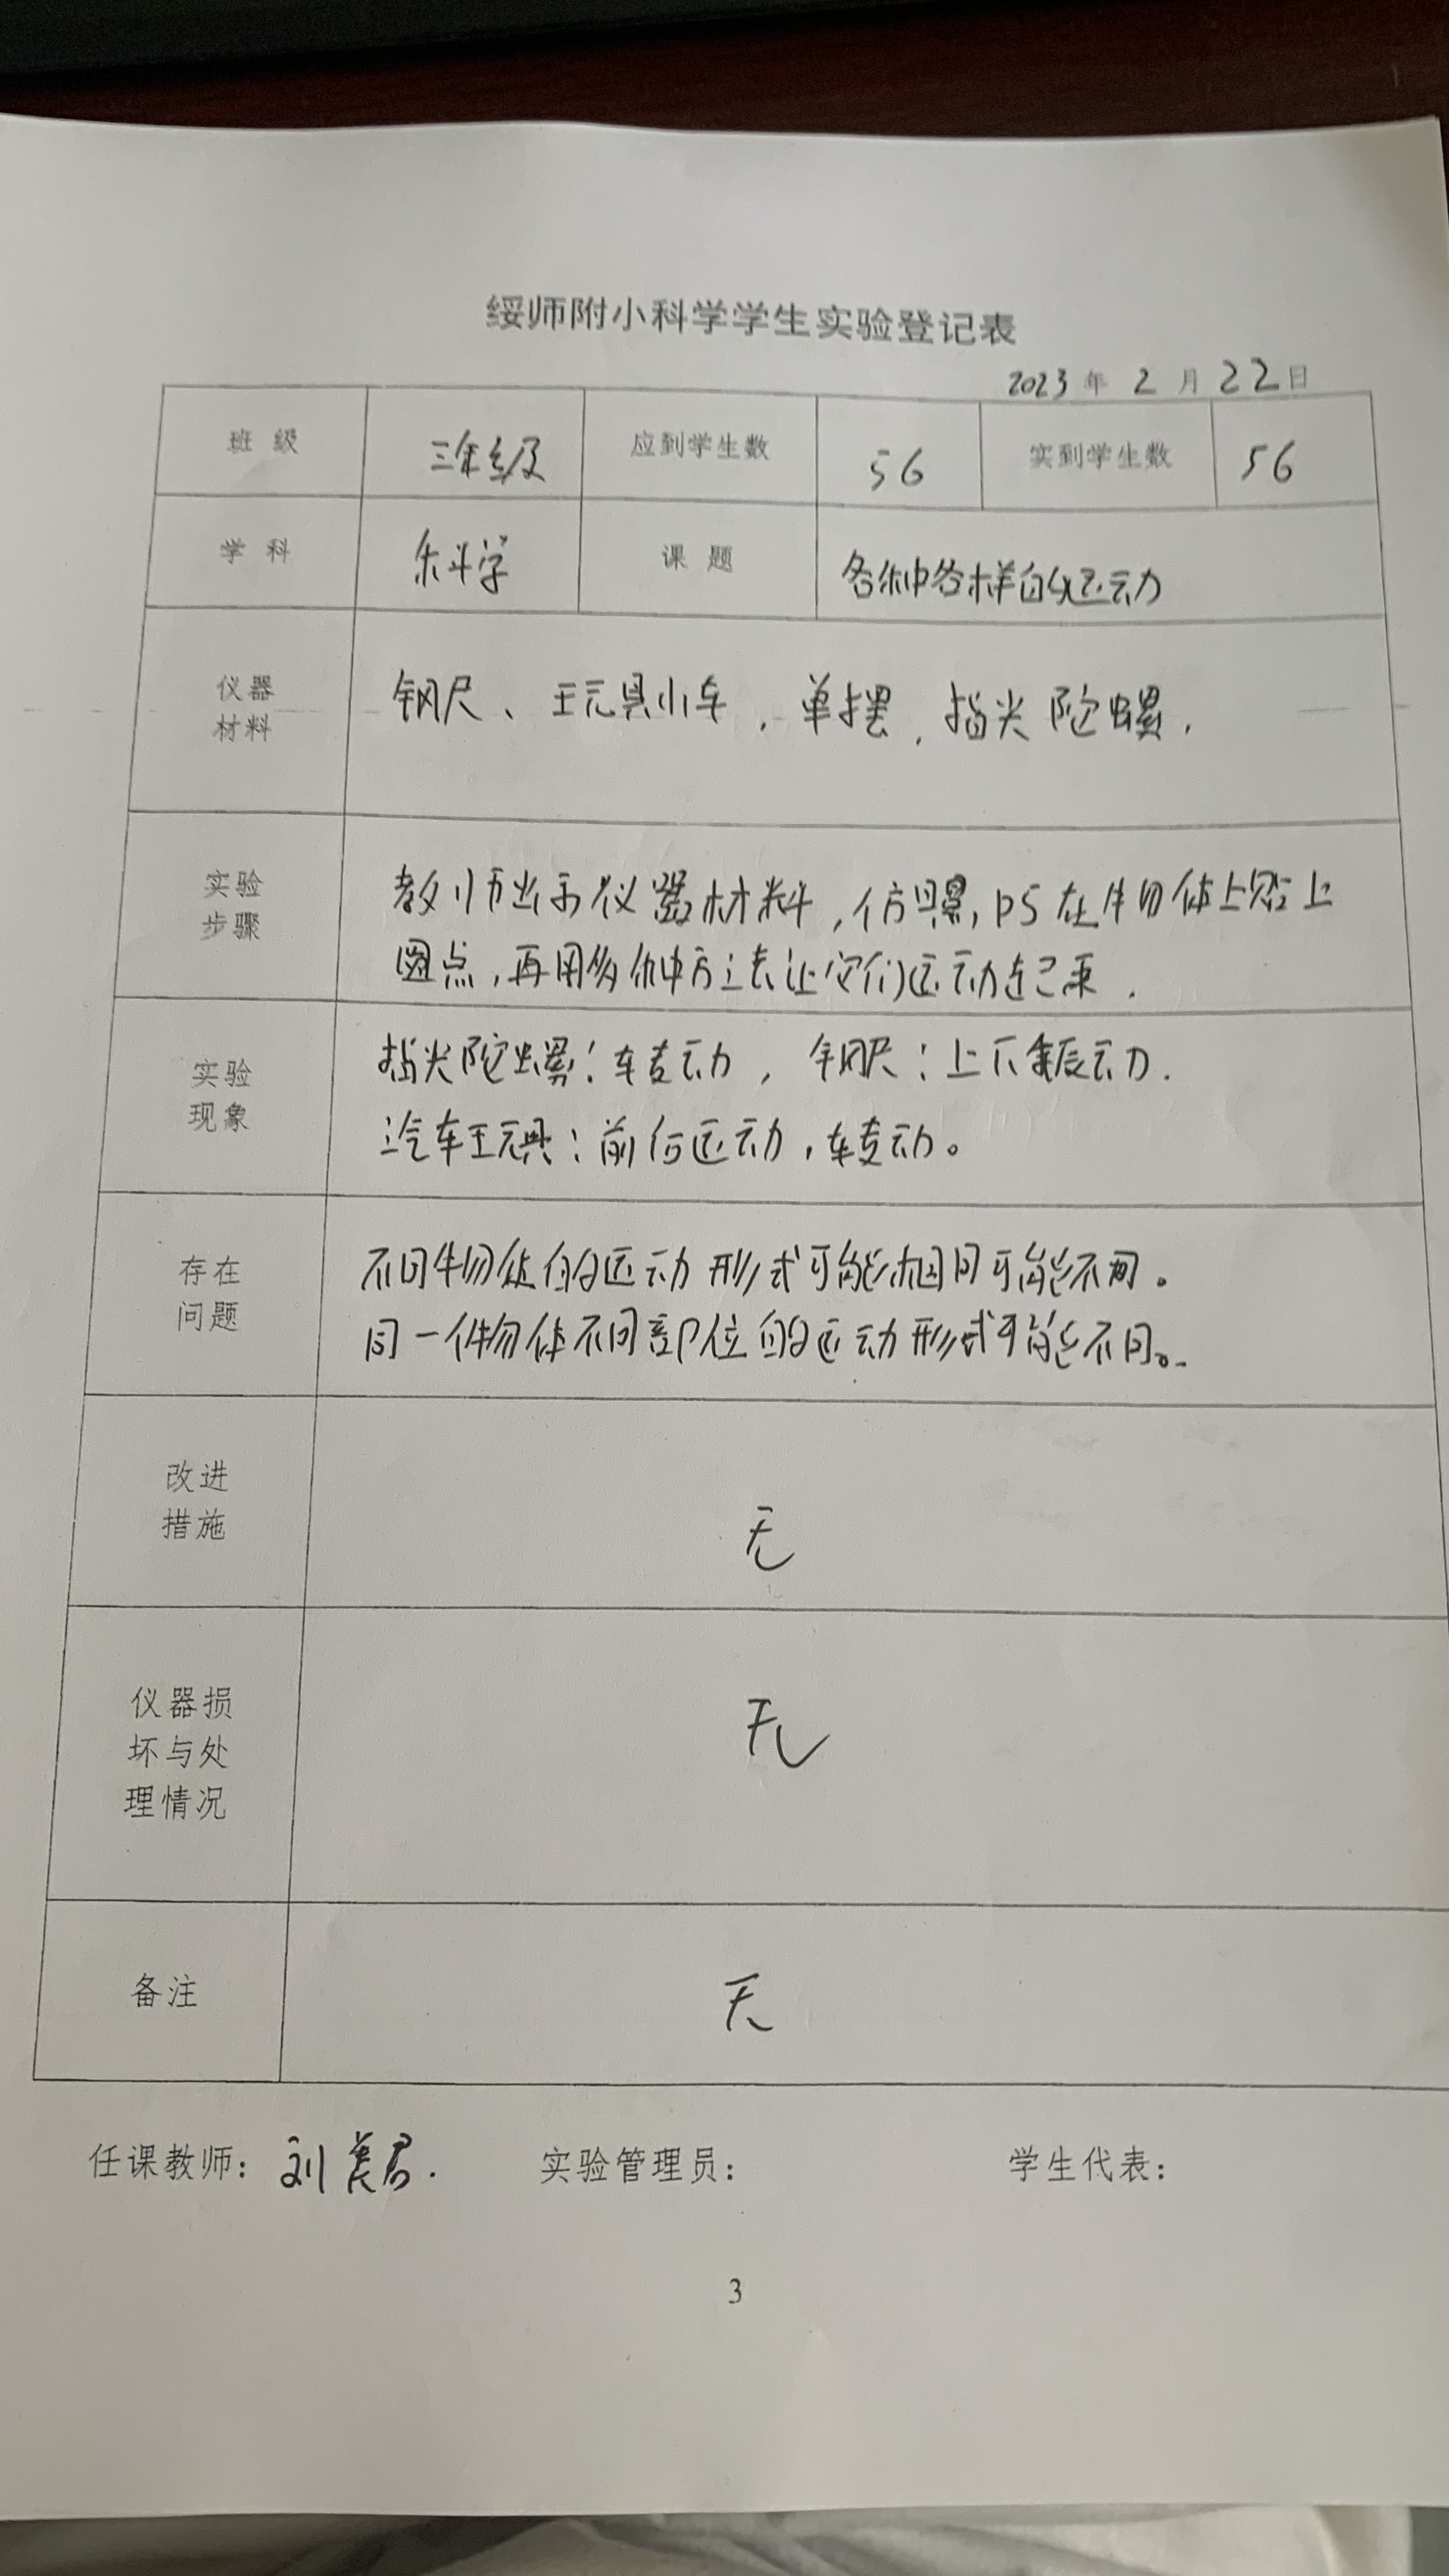 绥师附小科学学生实验登记表
2023 年 2 月 22 日
班 级 三年级 应到学生数 56 实到学生数 56
学 科 科学 课 题 各种各样的运动
仪器
材料
钢尺、玩具小车，单摆，指尖陀螺，
实验
步骤
教师出示仪器材料，仿 在物体上贴上
圆点，再用多种方法让它们运动起来．
实验
现象
指尖陀螺：转动，钢尺：上下振动．
汽车玩具：前后运动，转动。
存在
问题
不同物体的运动形式可能相同可能不同。
同一个物体不同部位的运动形式可能不同。
改进
措施
无
仪器损
坏与处
理情况
无
备注
无
任课教师：刘美君． 实验管理员： 学生代表：
3